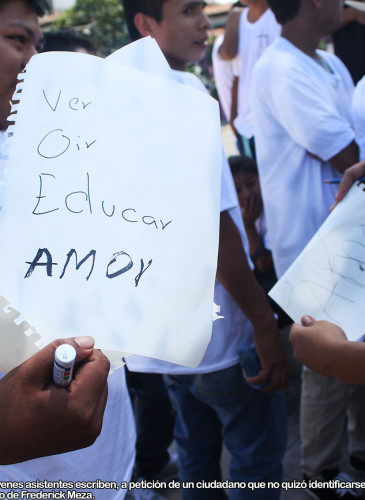 Ver
Oir
Educar
AMOr
venes asistentes escriben, a petición de un ciudadano que no quizó identificarse
o de Frederick Meza.